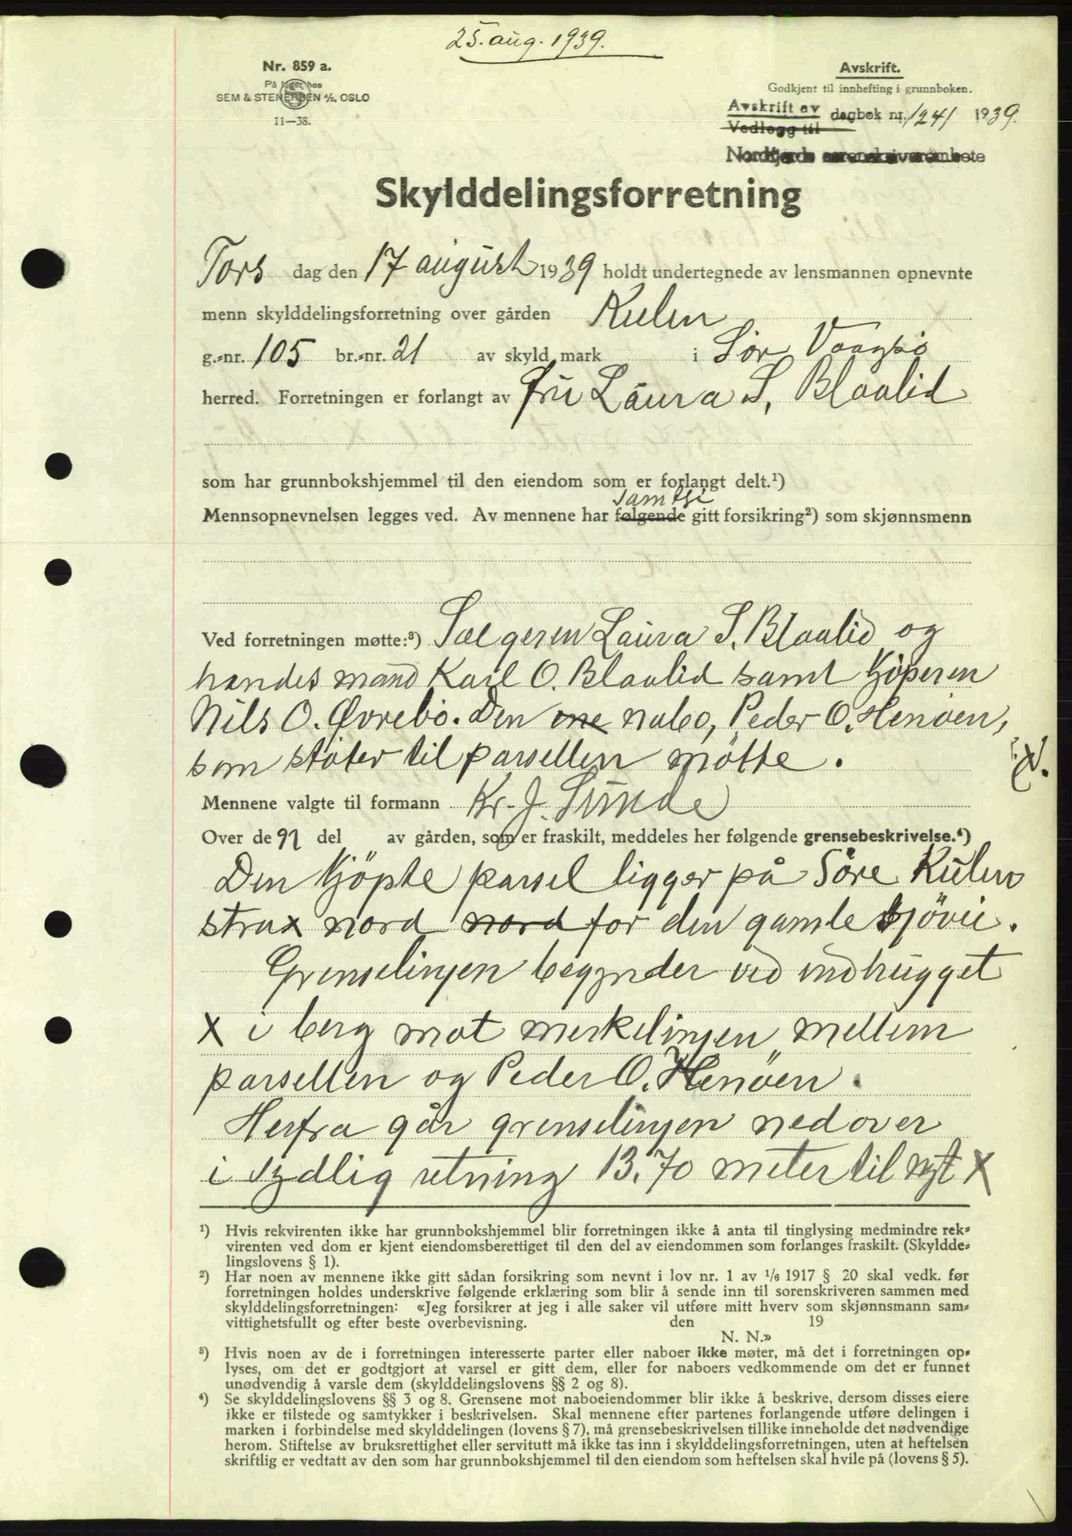 25. aug. 1939.
Nr. 859 a.
På lager hos
SEM & STENERSEN A/S, OSLO
11—38.
Avskrift.
Godkjent til innhefting i grunnboken.
Avskrift av dagbok nr. 1241 1939.
Vedlegg til
Nordfjords sorenskriverembete
Skylddelingsforretning
Tors dag den 17 august 1939 holdt undertegnede av lensmannen opnevnte
menn skylddelingsforretning over gården Kulen
g.-nr. 105 br.-nr. 21 av skyld mark i Sør Vaagsø
herred. Forretningen er forlangt av fru Laura S. Blaalid
som har grunnbokshjemmel til den eiendom som er forlangt delt.¹)
samtlige
Mennsopnevnelsen legges ved. Av mennene har følgende gitt forsikring²) som skjønnsmenn
Ved forretningen møtte:³) Sælgeren Laura S. Blaalid og
hendes mand Karl O. Blaalid samt kjöperen
Nils O. Øvrebö. Den ene nabo, Peder O. Henöen,
som støter til parsellen mötte.
Mennene valgte til formann Kr. J. Sunde
Over de 97 del av gården, som er fraskilt, meddeles her følgende grensebeskrivelse.⁴)
Den kjöpte parsel ligger på Söre Kulen
strax nord nord for den gamle sjövei.
Grenselinjen begynder ved indhugget
X i berg mot merkelinjen mellem
parsellen og Peder O. Henöen.
Herfra går grenselinjen nedover
i sydlig retning 13,70 meter til nyt X
¹) Hvis rekvirenten ikke har grunnbokshjemmel blir forretningen ikke å anta til tinglysing medmindre rek-
virenten ved dom er kjent eiendomsberettiget til den del av eiendommen som forlanges fraskilt. (Skyldde-
lingslovens § 1).
²) Har noen av mennene ikke gitt sådan forsikring som nevnt i lov nr. 1 av 1/6 1917 § 20 skal vedk. før
forretningen holdes underskrive følgende erklæring som blir å sende inn til sorenskriveren sammen med
skylddelingsforretningen: «Jeg forsikrer at jeg i alle saker vil utføre mitt hverv som skjønnsmann sam-
vittighetsfullt og efter beste overbevisning. den 19
N. N.»
³) Hvis noen av de i forretningen interesserte parter eller naboer ikke møter, må det i forretningen op-
lyses, om det er godtgjort at varsel er gitt dem, eller for naboers vedkommende om det er funnet
unødvendig å varsle dem (skylddelingslovens §§ 2 og 8).
⁴) Se skylddelingslovens §§ 3 og 8. Grensene mot naboeiendommer blir ikke å beskrive, dersom disses eiere
ikke er tilstede og samtykker i beskrivelsen. Skal mennene efter partenes forlangende utføre delingen i
marken i forbindelse med skylddelingen (lovens § 7), må grensebeskrivelsen tillike inneholde det nødvendige
herom. Stiftelse av bruksrettighet eller servitutt må ikke tas inn i skylddelingsforretningen, uten at heftelsen
skriftlig er vedtatt av den som har grunnbokshjemmel til den eiendom som heftelsen skal hvile på (lovens § 5).